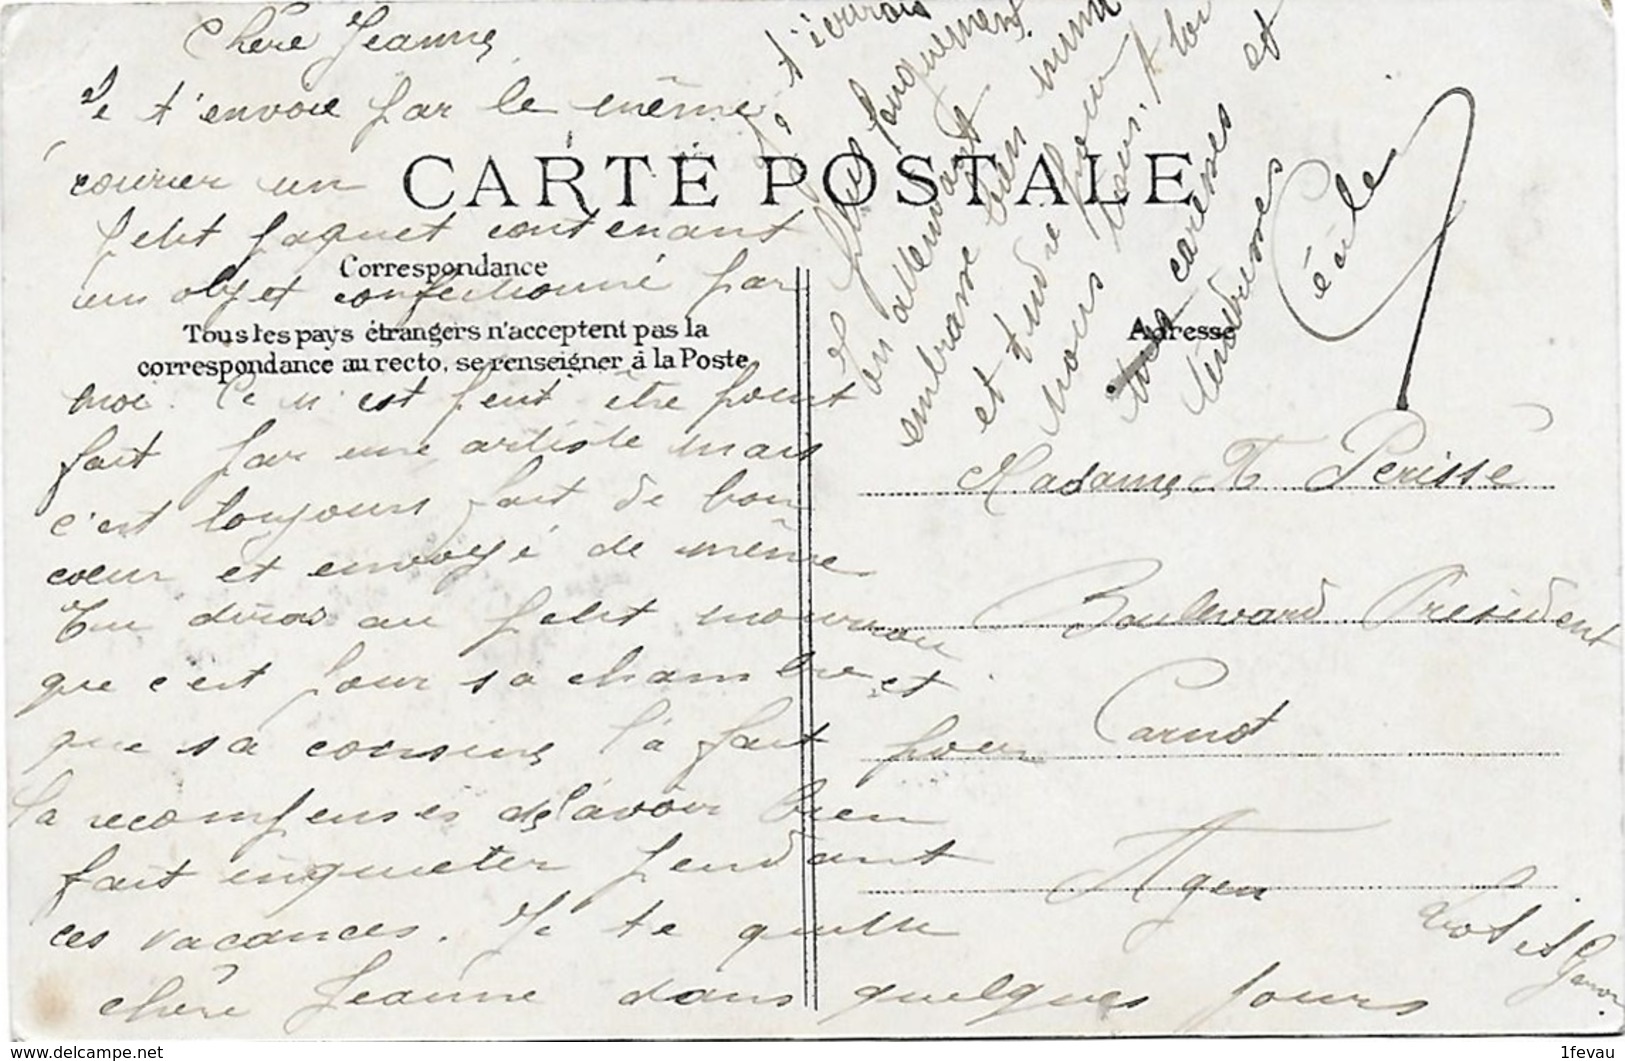 Chère Jeanne,
Je t'envoie par le même
courrier un
CARTE POSTALE
petit paquet contenant
Correspondance
un objet confectionné par
Tous les pays étrangers n'acceptent pas la
correspondance au recto, se renseigner à la Poste
moi. Ce n'est peut être point
fait par une artiste mais
c'est toujours fait de bon
coeur et envoyé de même
Tu diras au petit
que c'est pour sa chambre et
que sa cousine l'a fait pour
la recompenses de l'avoir bien
fait inquieter pendant
ces vacances. Je te quitte
chère Jeanne dans quelques jours
je t'écrirais
plus longuement.
en attendant
embrasse bien mimi
et André pour
nous tous. A toi
mes caresses et
tendresses
Cécile
Adresse
Madame Perissé
Boulevard President
Carnot
Agen
Lot et Garon.
www.delcampe.net
1fevau